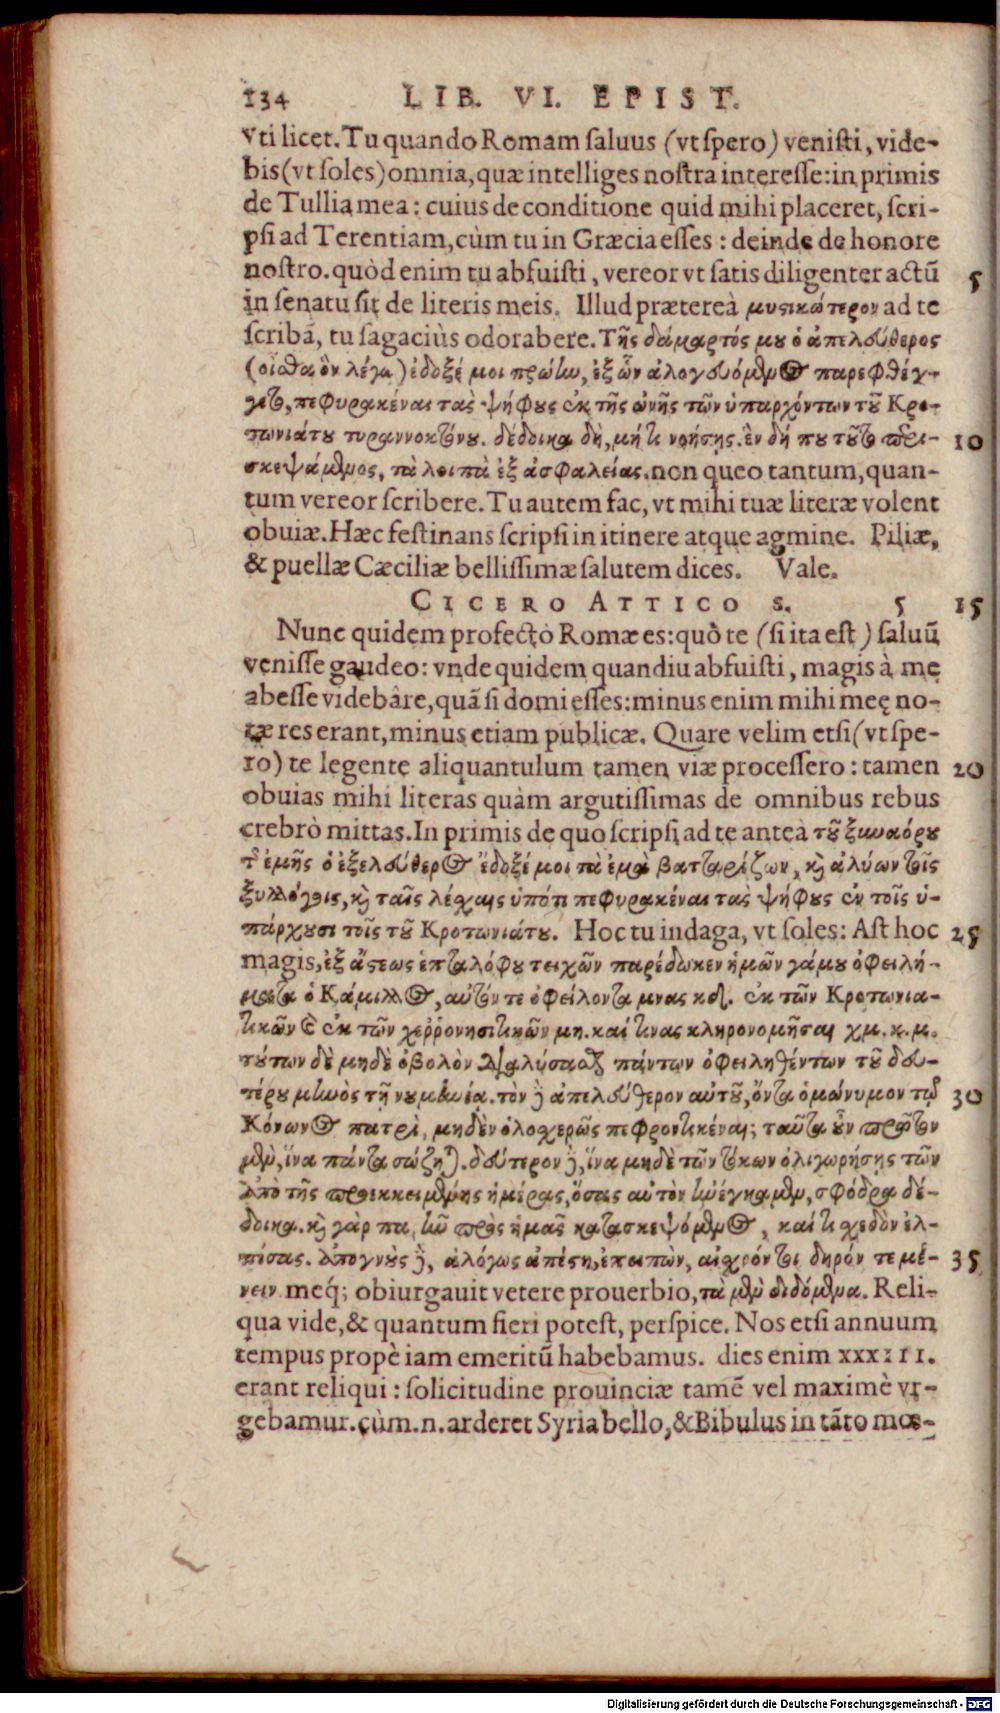 134 LIB. VI. EPIST.
vti licet. Tu quando Romam saluus (vt spero) venisti, vide-
bis (vt soles) omnia, quæ intelliges nostra interesse: in primis
de Tullia mea: cuius de conditione quid mihi placeret, scri-
psi ad Terentiam, cùm tu in Græcia esses: deinde de honore
nostro. quòd enim tu abfuisti, vereor vt satis diligenter actū 5
in senatu sit de literis meis. Illud prætereà μυςικώτερον ad te
scribā, tu sagaciùs odorabere. Τῆς δάμαρτός μου ὁ ἀπελεύθερος
(οἶσθα ὃν λέγω) ἔδοξέ μοι πρώην, ἐξ ὧν ἀλογευόμενος παρεφθέγ-
γετο, πεφυρακέναι τὰς ψήφους ἐκ τῆς ὠνῆς τῶν ὑπαρχόντων τοῦ Κρο-
τωνιάτου τυραννοκτόνου. δέδοικα δὴ, μή τι νοήσῃς. ἓν δή που τοῦτο περι- 10
σκεψάμενος, τὰ λοιπὰ ἐξ ἀσφαλείας. non queo tantum, quan-
tum vereor scribere. Tu autem fac, vt mihi tuæ literæ volent
obuiæ. Hæc festinans scripsi in itinere atque agmine. Piliæ,
& puellæ Cæciliæ bellissimæ salutem dices. Vale.
CICERO ATTICO S. 5 15
Nunc quidem profectò Romæ es: quò te (si ita est) saluū
venisse gaudeo: vnde quidem quandiu abfuisti, magis à me
abesse videbâre, quā si domi esses: minus enim mihi meę no-
tæ res erant, minus etiam publicæ. Quare velim etsi (vt spe-
ro) te legente aliquantulum tamen viæ processero: tamen 20
obuias mihi literas quàm argutissimas de omnibus rebus
crebrò mittas. In primis de quo scripsi ad te anteà τοῦ ξυναόρου
τῆς ἐμῆς ὁ ἐξελεύθερος ἔδοξέ μοι τὰ ἐμὰ βατταρίζων, καὶ ἀλύων ἐν τοῖς
ξυλλόγοις, καὶ ταῖς λέσχαις ὑπό τι πεφυρακέναι τὰς ψήφους ἐν τοῖς ὑ-
πάρχουσι τοῖς τοῦ Κροτωνιάτου. Hoc tu indaga, vt soles: Ast hoc 25
magis, ἐξ ἄστεως ἑπταλόφου στειχῶν παρέδωκεν ἡμῶν γάμου ὀφειλή-
ματα ὁ Κάμιλλος, αὑτόν τε ὀφείλοντα μνας κδ. ἐκ τῶν Κροτωνια-
τικῶν καὶ ἐκ τῶν χεῤῥονησιτικῶν μη. καί τινας κληρονομῆσαι χμ. κ. μ.
τούτων δὲ μηδὲ ὀβολὸν διαλύσασθαι πάντων ὀφειληθέντων τοῦ δευ-
τέρου μηνὸς τῇ νουμηνίᾳ. τὸν δὲ ἀπελεύθερον αὐτοῦ, ὄντα ὁμώνυμον τῷ 30
Κόνωνος πατρὶ, μηδὲν ὁλοχερῶς πεφροντικέναι; ταῦτα οὖν πρῶτον
μὲν, ἵνα πάντα σώζηται. δεύτερον δὲ, ἵνα μηδὲ τῶν τόκων ὀλιγωρήσῃς τῶν
ἀπὸ τῆς προεκκειμένης ἡμέρας, ὅσας αὐτὸν ἠνέγκαμεν, σφόδρα δέ-
δοικα. καὶ γὰρ παρῆν πρὸς ἡμᾶς κατασκεψόμενος, καί τι σχεδὸν ἐλ-
πίσας. ἀπογνοὺς δὲ, ἀλόγως ἀπέστη, ἐπειπὼν, αἰσχρόν τοι δηρόν τε μέ- 35
νειν meq; obiurgauit vetere prouerbio, τὰ μὲν διδόμενα. Reli-
qua vide, & quantum fieri potest, perspice. Nos etsi annuum
tempus propè iam emeritū habebamus. dies enim xxxiii.
erant reliqui: solicitudine prouinciæ tamē vel maximè vr-
gebamur. cùm .n. arderet Syria bello, & Bibulus in tāto mœ-
Digitalisierung gefördert durch die Deutsche Forschungsgemeinschaft - DFG